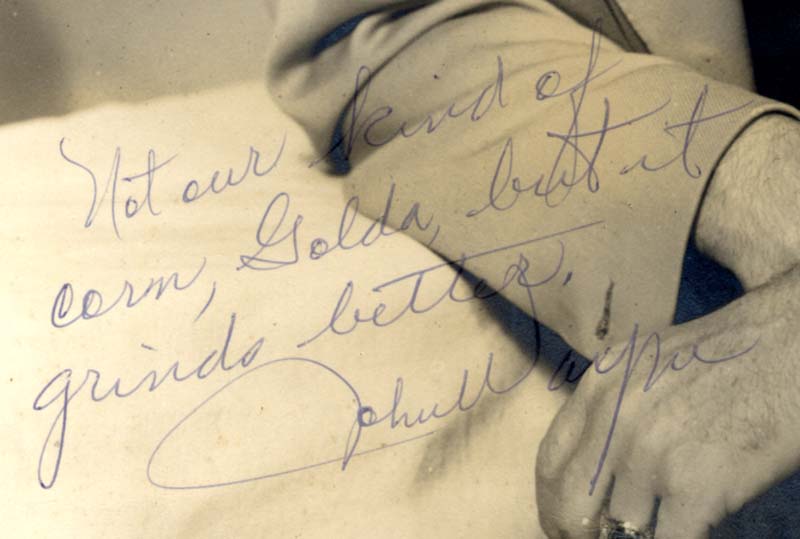 Not our kind of
corn, Golda, but it
grinds better.
John Wayne